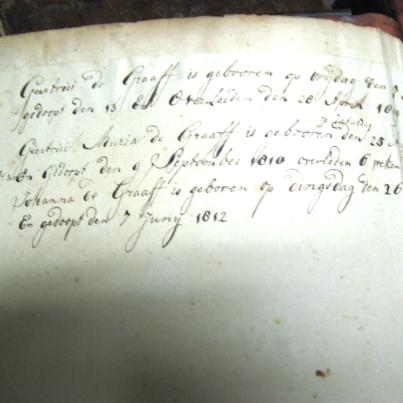 Geertrui de Graaff is gebooren op vrijdag den
gedoopt den 13 en Overleeden den 28 April
Geertrui Maria de Graaff is gebooren den 25
En Gedoopt den 9 September 1810 overleden 6 weken
Johanna de Graaff is geboren op dingsdag den 26
En gedoopt den 7 Junij 1812